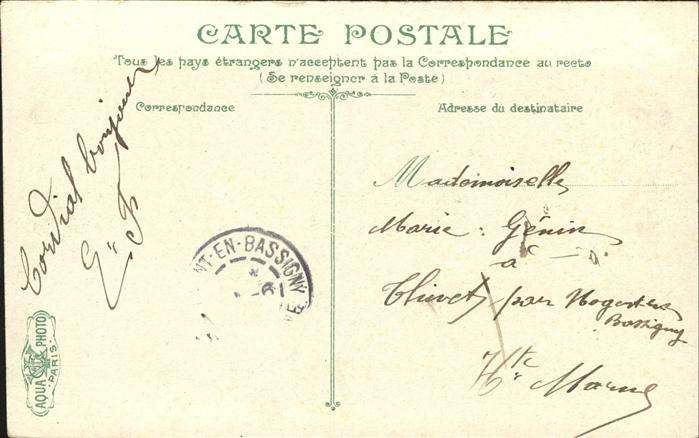 CARTE POSTALE
Tous les pays étrangers n'acceptent pas la Correspondance au recto
(Se renseigner à la Poste)
Correspondance
Adresse du destinataire
Cordial bonjour
E. F
NT-EN-BASSIGNY
Mademoiselle
Marie Génin
à
Thivet par Nogent en
Bassigny
Hte Marne
AQUA PHOTO
PARIS